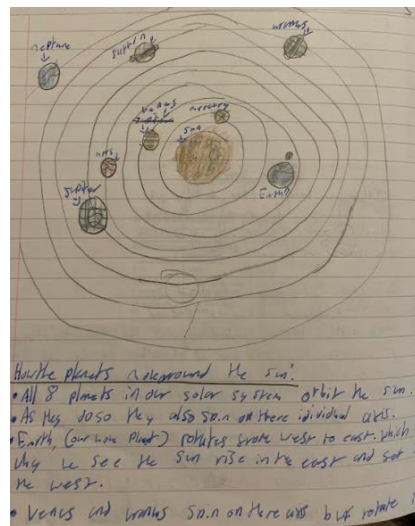 neptune
saturn
uranus
Venus
mercury
Sun
mars
Jupiter
Earth
How the planets move around the sun:
• All 8 planets in our solar system orbit the sun.
• As they do so they also spin on there individual axis.
• Earth, (our home planet) rotates from west to east. which
why we see the sun rise in the east and set
the west.
• Venus and uranus spin on there axis but rotate